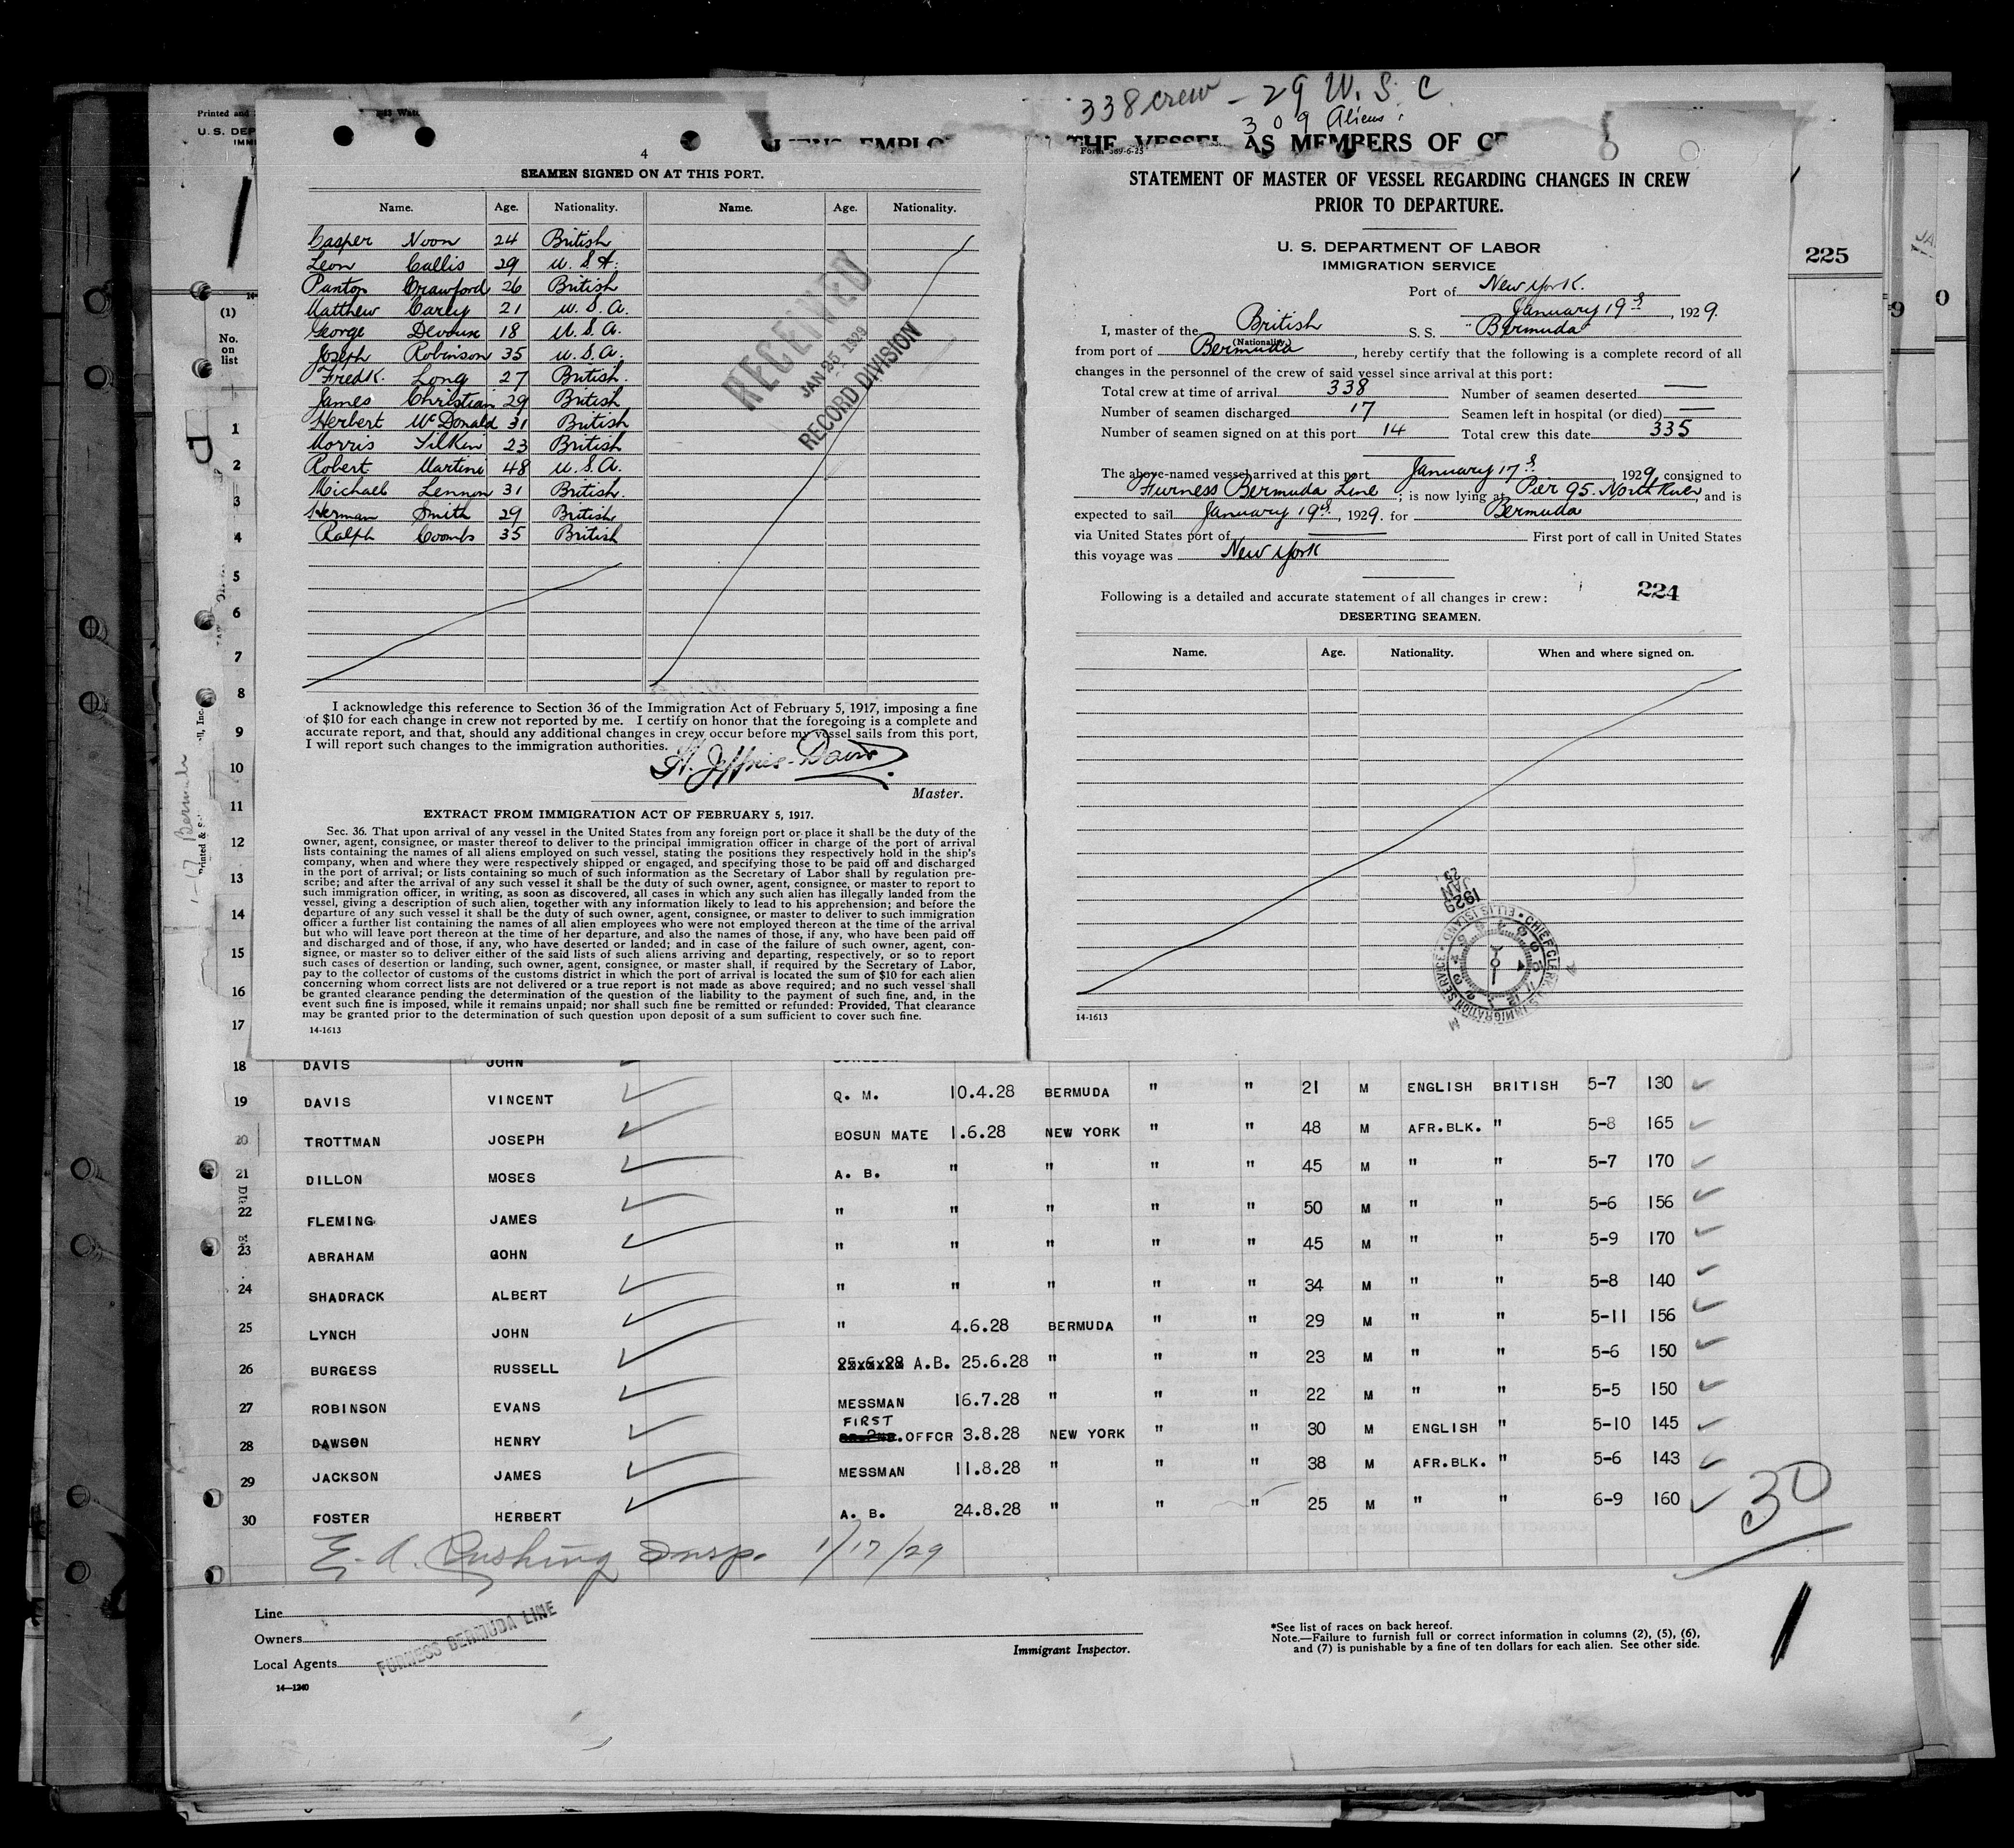 338 crew - 29 W. S. C
309 Aliens
Printed and
U. S. DEP
IMMI
THE VESSEL AS MEMBERS OF C
4
SEAMEN SIGNED ON AT THIS PORT.
Name. Age. Nationality. Name. Age. Nationality.
Casper Noon 24 British
Leon Callis 29 U. S. A.
Panton Crawford 26 British
Matthew Carey 21 U. S. A.
George 18 U. S. A.
Joseph Robinson 35 U. S. A.
Fredk. Long 27 British.
James Christian 29 British
Herbert McDonald 31 British
Morris Silkin 23 British
Robert Martini 48 U. S. A.
Michael Lennon 31 British.
Herman Smith 29 British
Ralph Coombs 35 British
RECEIVED
JAN 25 1929
RECORD DIVISION
I acknowledge this reference to Section 36 of the Immigration Act of February 5, 1917, imposing a fine
of $10 for each change in crew not reported by me. I certify on honor that the foregoing is a complete and
accurate report, and that, should any additional changes in crew occur before my vessel sails from this port,
I will report such changes to the immigration authorities.
H. Jeffries-Davis
Master.
EXTRACT FROM IMMIGRATION ACT OF FEBRUARY 5, 1917.
Sec. 36. That upon arrival of any vessel in the United States from any foreign port or place it shall be the duty of the
owner, agent, consignee, or master thereof to deliver to the principal immigration officer in charge of the port of arrival
lists containing the names of all aliens employed on such vessel, stating the positions they respectively hold in the ship's
company, when and where they were respectively shipped or engaged, and specifying those to be paid off and discharged
in the port of arrival; or lists containing so much of such information as the Secretary of Labor shall by regulation pre-
scribe; and after the arrival of any such vessel it shall be the duty of such owner, agent, consignee, or master to report to
such immigration officer, in writing, as soon as discovered, all cases in which any such alien has illegally landed from the
vessel, giving a description of such alien, together with any information likely to lead to his apprehension; and before the
departure of any such vessel it shall be the duty of such owner, agent, consignee, or master to deliver to such immigration
officer a further list containing the names of all alien employees who were not employed thereon at the time of the arrival
but who will leave port thereon at the time of her departure, and also the names of those, if any, who have been paid off
and discharged and of those, if any, who have deserted or landed; and in case of the failure of such owner, agent, con-
signee, or master so to deliver either of the said lists of such aliens arriving and departing, respectively, or so to report
such cases of desertion or landing, such owner, agent, consignee, or master shall, if required by the Secretary of Labor,
pay to the collector of customs of the customs district in which the port of arrival is located the sum of $10 for each alien
concerning whom correct lists are not delivered or a true report is not made as above required; and no such vessel shall
be granted clearance pending the determination of the question of the liability to the payment of such fine, and, in the
event such fine is imposed, while it remains unpaid; nor shall such fine be remitted or refunded: Provided, That clearance
may be granted prior to the determination of such question upon deposit of a sum sufficient to cover such fine.
14-1613
STATEMENT OF MASTER OF VESSEL REGARDING CHANGES IN CREW
PRIOR TO DEPARTURE.
U. S. DEPARTMENT OF LABOR
IMMIGRATION SERVICE
Port of New York.
January 19th, 1929.
I, master of the British S. S. "Bermuda"
(Nationality)
from port of Bermuda, hereby certify that the following is a complete record of all
changes in the personnel of the crew of said vessel since arrival at this port:
Total crew at time of arrival 338 Number of seamen deserted
Number of seamen discharged 17 Seamen left in hospital (or died)
Number of seamen signed on at this port 14 Total crew this date 335
The above-named vessel arrived at this port January 17th 1929, consigned to
Furness Bermuda Line; is now lying at Pier 95. North River, and is
expected to sail January 19th, 1929. for Bermuda
via United States port of First port of call in United States
this voyage was New York
224
Following is a detailed and accurate statement of all changes in crew:
DESERTING SEAMEN.
Name. Age. Nationality. When and where signed on.
1929
JAN
25
CHIEF CLERK U.S. IMMIGRATION SERVICE ELLIS ISLAND
14-1613
225
(1)
No.
on
list
1
2
3
4
5
6
7
8
9
10
11
12
13
14
15
16
17
1-17 Bermuda
18 DAVIS JOHN
19 DAVIS VINCENT Q. M. 10.4.28 BERMUDA " " 21 M ENGLISH BRITISH 5-7 130
20 TROTTMAN JOSEPH BOSUN MATE 1.6.28 NEW YORK " " 48 M AFR.BLK. " 5-8 165
21 DILLON MOSES A. B. " " " " 45 M " " 5-7 170
22 FLEMING JAMES " " " " " 50 M " " 5-6 156
23 ABRAHAM GOHN " " " " " 45 M " " 5-9 170
24 SHADRACK ALBERT " " " " " 34 M " " 5-8 140
25 LYNCH JOHN " 4.6.28 BERMUDA " " 29 M " " 5-11 156
26 BURGESS RUSSELL A.B. 25.6.28 " " " 23 M " " 5-6 150
27 ROBINSON EVANS MESSMAN 16.7.28 " " " 22 M " " 5-5 150
28 DAWSON HENRY FIRST OFFCR 3.8.28 NEW YORK " " 30 M ENGLISH " 5-10 145
29 JACKSON JAMES MESSMAN 11.8.28 " " " 38 M AFR.BLK. " 5-6 143
30 FOSTER HERBERT A. B. 24.8.28 " " " 25 M " " 6-9 160
30
E. A. Cushing Insp. 1/17/29
Line
Owners
Local Agents
FURNESS BERMUDA LINE
14-1240
Immigrant Inspector.
*See list of races on back hereof.
Note.—Failure to furnish full or correct information in columns (2), (5), (6),
and (7) is punishable by a fine of ten dollars for each alien. See other side.